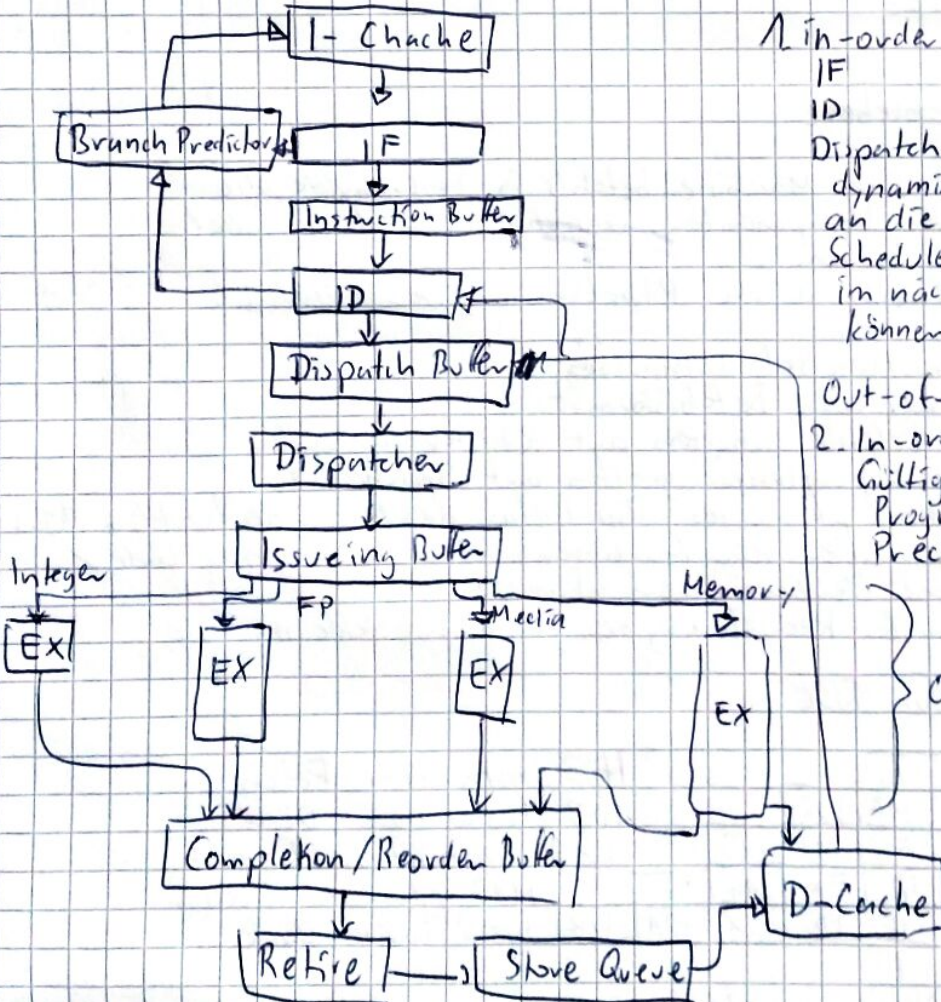 I-Chache
Branch Predictor
IF
Instruction Buffer
ID
Dispatch Buffer
Dispatcher
Issueing Buffer
Integer
FP
Media
Memory
EX
EX
EX
EX
Completion/Reorder Buffer
D-Cache
Retire
Store Queue
1. in-order
IF
ID
Dispatch
dynami
an die
Schedule
im näc
können
Out-of-
2. In-or
Gültig
Prog
Prec